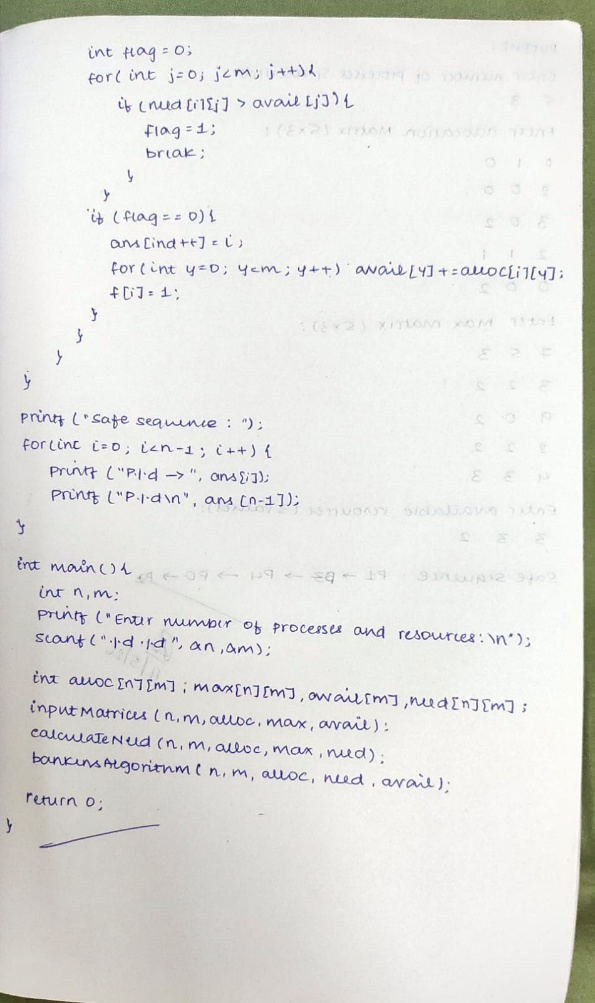 int flag = 0;
for( int j=0; j<m; j++){
if (need [i][j] > avail [j]) {
flag = 1;
break;
}
}
if (flag == 0) {
ans [ind ++] = i;
for (int y=0; y<m; y++) avail [y] += alloc[i][y];
f[i] = 1;
}
}
}
}
printf ("Safe sequence : ");
for (int i=0; i<n-1; i++) {
printf ("P%d ->", ans[i]);
printf ("P%d\n", ans [n-1]);
}
int main() {
int n, m;
printf ("Enter number of processes and resources: \n");
scanf ("%d %d", &n, &m);
int alloc [n][m]; max[n][m], avail[m], need[n][m];
inputMatrices (n, m, alloc, max, avail);
calculateNeed (n, m, alloc, max, need);
bankersAlgorithm ( n, m, alloc, need, avail);
return 0;
}